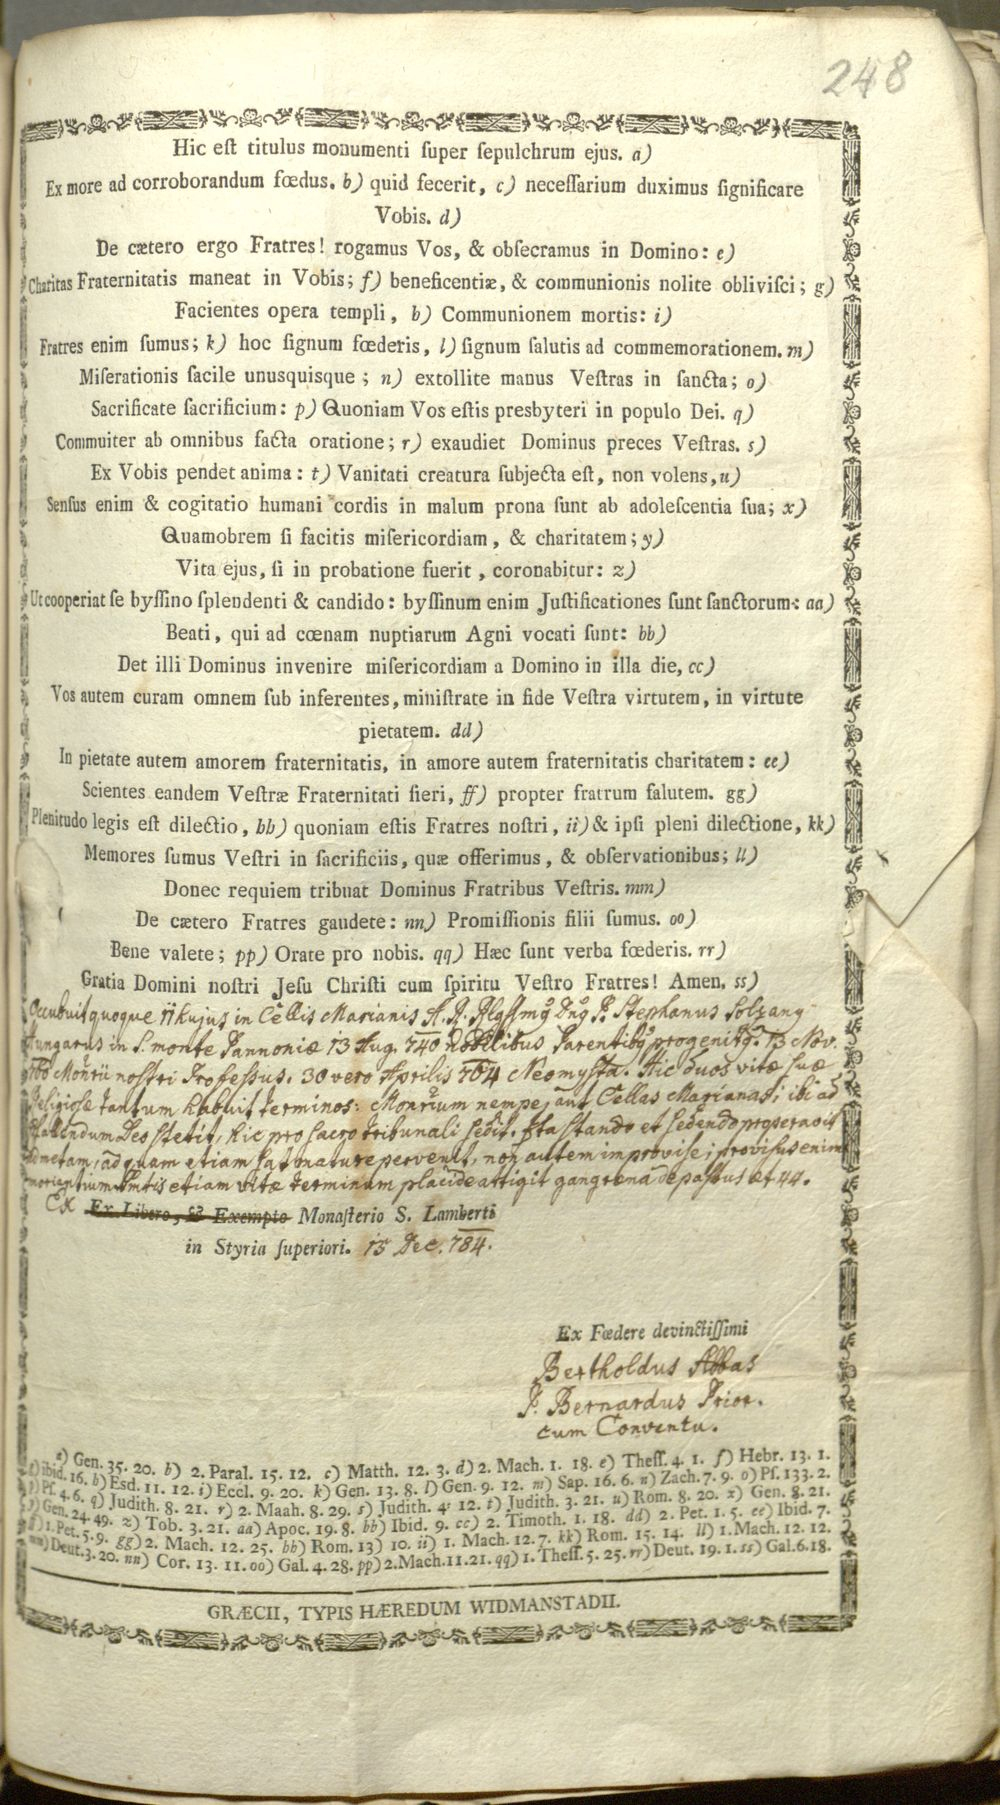 248
Hic est titulus monumenti super sepulchrum ejus. a)
Ex more ad corroborandum fœdus. b) quid fecerit, c) necessarium duximus significare
Vobis. d)
De cætero ergo Fratres! rogamus Vos, & obsecramus in Domino: e)
Charitas Fraternitatis maneat in Vobis; f) beneficentiæ, & communionis nolite oblivisci; g)
Facientes opera templi, h) Communionem mortis: i)
Fratres enim sumus; k) hoc signum fœderis, l) signum salutis ad commemorationem. m)
Miserationis facile unusquisque; n) extollite manus Vestras in sancta; o)
Sacrificate sacrificium: p) Quoniam Vos estis presbyteri in populo Dei. q)
Commuiter ab omnibus facta oratione; r) exaudiet Dominus preces Vestras. s)
Ex Vobis pendet anima: t) Vanitati creatura subjecta est, non volens, u)
Sensus enim & cogitatio humani cordis in malum prona sunt ab adolescentia sua; x)
Quamobrem si facitis misericordiam, & charitatem; y)
Vita ejus, si in probatione fuerit, coronabitur: z)
Ut cooperiat se byssino splendenti & candido: byssinum enim Justificationes sunt sanctorum: aa)
Beati, qui ad cœnam nuptiarum Agni vocati sunt: bb)
Det illi Dominus invenire misericordiam a Domino in illa die, cc)
Vos autem curam omnem sub inferentes, ministrate in fide Vestra virtutem, in virtute
pietatem. dd)
In pietate autem amorem fraternitatis, in amore autem fraternitatis charitatem: ee)
Scientes eandem Vestræ Fraternitati fieri, ff) propter fratrum salutem. gg)
Plenitudo legis est dilectio, hh) quoniam estis Fratres nostri, ii) & ipsi pleni dilectione, kk)
Memores sumus Vestri in sacrificiis, quæ offerimus, & observationibus; ll)
Donec requiem tribuat Dominus Fratribus Vestris. mm)
De cætero Fratres gaudete: nn) Promissionis filii sumus. oo)
Bene valete; pp) Orate pro nobis. qq) Hæc sunt verba fœderis. rr)
Gratia Domini nostri Jesu Christi cum spiritu Vestro Fratres! Amen, ss)
Occubuit quoque 11 hujus in Cellis Marianis A. R. Rlgssmg Dng P. Stephanus Solzang
Hungarus in S. monte Pannoniæ 13 Aug. 740 nobilibus Parentibg progenitg. 13 Nov.
760 Monrii nostri Professus. 30 vero Aprilis 764 Neomysta. Hic duos vitæ suæ
Religiosæ tantum habuit terminos: Monrium nempe, aut Cellas Marianas; ibi ad
Psallendum Deo stetit, hic pro sacro tribunali sedit. Ita stando et sedendo properavit
ad metam, ad quam etiam sat mature pervenit, non autem improvise; provisus enim
etiam vitæ terminum placide attigit gangrena depastus æt 44.
Ex Ex Libero, & Exempto Monasterio S. Lamberti
in Styria superiori. 13 Dec. 784.
Ex Fœdere devinctissimi
Bertholdus Abbas
P. Bernardus Prior.
cum Conventu.
a) Gen. 35. 20. b) 2. Paral. 15. 12. c) Matth. 12. 3. d) 2. Mach. 1. 18. e) Thess. 4. 1. f) Hebr. 13. 1.
g) ibid. 16. h) Esd. 11. 12. i) Eccl. 9. 20. k) Gen. 13. 8. l) Gen. 9. 12. m) Sap. 16. 6. n) Zach. 7. 9. o) Ps. 133. 2.
p) Ps. 4. 6. q) Judith. 8. 21. r) 2. Maah. 8. 29. s) Judith. 4. 12. t) Judith. 3. 21. u) Rom. 8. 20. x) Gen. 8. 21.
y) Gen. 24. 49. z) Tob. 3. 21. aa) Apoc. 19. 8. bb) Ibid. 9. cc) 2. Timoth. 1. 18. dd) 2. Pet. 1. 5. ee) Ibid. 7.
ff) 1. Pet. 5. 9. gg) 2. Mach. 12. 25. hh) Rom. 13) 10. ii) 1. Mach. 12. 7. kk) Rom. 15. 14. ll) 1. Mach. 12. 12.
mm) Deut. 3. 20. nn) Cor. 13. 11. oo) Gal. 4. 28. pp) 2. Mach. 11. 21. qq) 1. Thess. 5. 25. rr) Deut. 19. 1. ss) Gal. 6. 18.
GRÆCII, TYPIS HÆREDUM WIDMANSTADII.